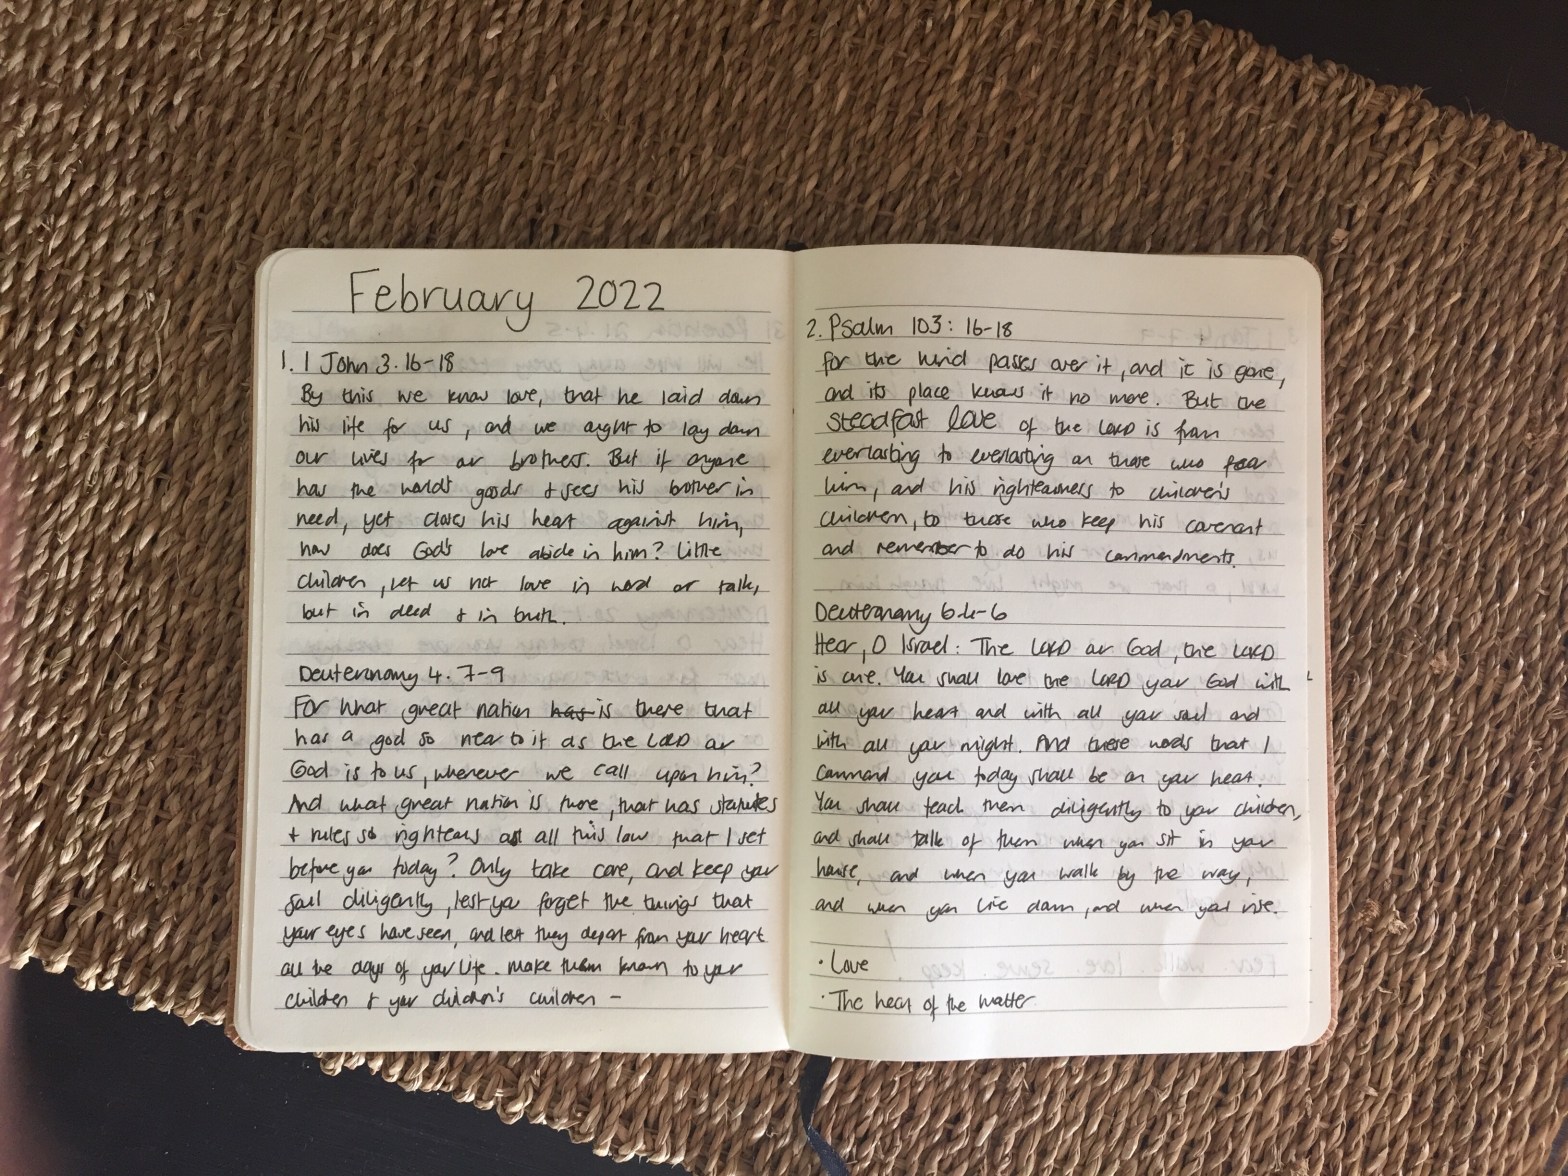 February 2022
1. 1 John 3.16-18
By this we know love, that he laid down
his life for us, and we ought to lay down
our lives for our brothers. But if anyone
has the world's goods + sees his brother in
need, yet closes his heart against him,
how does God's love abide in him? Little
children, let us not love in word or talk,
but in deed + in truth.
Deuteronomy 4.7-9
For what great nation has is there that
has a god so near to it as the LORD our
God is to us, whenever we call upon him?
And what great nation is there, that has statutes
+ rules so righteous as all this law that I set
before you today? Only take care, and keep your
soul diligently, lest you forget the things that
your eyes have seen, and lest they depart from your heart
all the days of your life. Make them known to your
children + your children's children -
2. Psalm 103: 16-18
for the wind passes over it, and it is gone,
and its place knows it no more. But the
steadfast love of the LORD is from
everlasting to everlasting on those who fear
him, and his righteousness to children's
children, to those who keep his covenant
and remember to do his commandments.
Deuteronomy 6.4-6
Hear, O Israel: The LORD our God, the LORD
is one. You shall love the LORD your God with
all your heart and with all your soul and
with all your might. And these words that I
command you today shall be on your heart.
You shall teach them diligently to your children,
and shall talk of them when you sit in your
house, and when you walk by the way,
and when you lie down, and when you rise.
· Love
· The heart of the matter